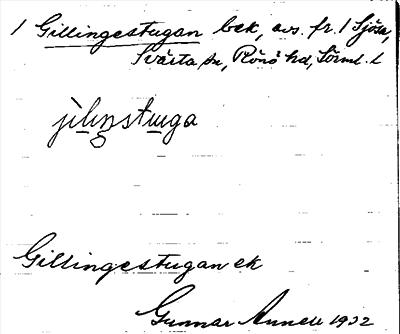 1 Gillingestugan bek, avs. fr. 1 Sjösa,
Svärta sn, Rönö hd, Sörml. l
jìliŋstuga
Gillingestugan ek
Gunnar Annell 1932